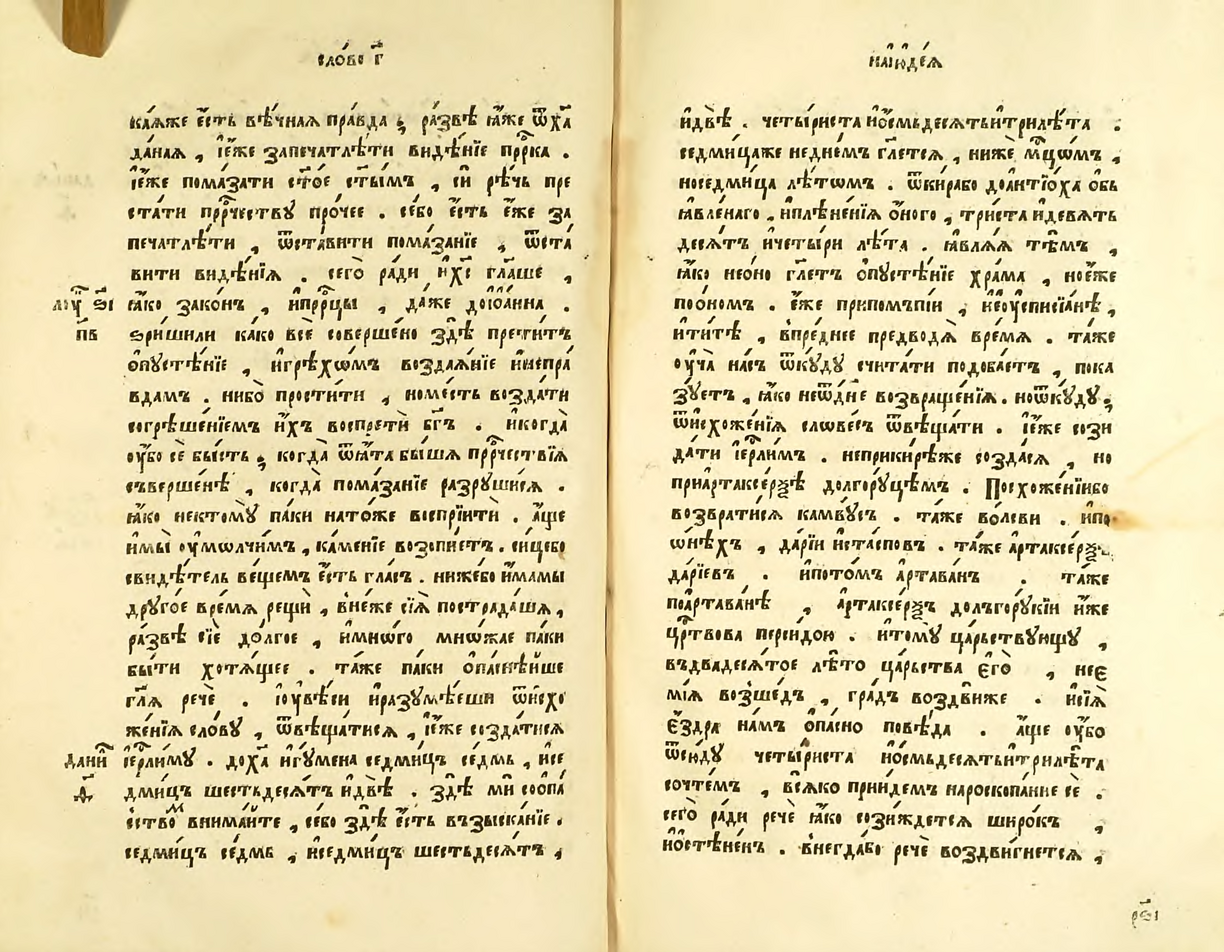 сло́во г҃
ка́ѧже є҆́сть вѣ́чнаѧ пра́вда ; ра́звѣ ꙗ҆́же ѿ ха҃
да́наѧ , і҆е́же запечатлѣ́ти видѣ́нїе прⷪ҇рка .
і҆е́же пома́зати ст҃ое ст҃ымъ , си рѣ́чь пре
ста́ти прⷪ҇рчествꙋ про́чее . се́бо є҆́сть є҆́же за
печатлѣ́ти , ѿста́вити пома́занїе , ѿста́
вити видѣ́нїѧ . сего̀ ра́ди и҆ х҃с гл҃аше ,
лоу҃ ѕ҃і ꙗ҆́ко зако́нъ , и҆прⷪ҇рцы , да́же дои҆ѡа́нна .
п҃в ѕри́шили ка́ко всѐ соверше́но здѣ̀ прети́тъ
ѻ҆пꙋстѣ́нїе , и҆грѣхѡ́мъ воздаѧ́нїе и҆непра́
вдамъ . ни́бо прости́ти , номе́сть возда́ти
согрѣше́нїемъ и҆́хъ воспретѝ бг҃ъ . и҆когда̀
ᲂу҆́бо сѐ бы́сть ; когда̀ ѿѧ҆та бы́шѧ прⷪ҇рчествїѧ
съверше́нѣ , когда̀ пома́занїе разрꙋши́сѧ .
ꙗ҆́ко нектомꙋ̀ па́ки нато́же воспрїи́ти . а҆́ще
и҆мы̀ ᲂу҆мѡлчи́мъ , ка́менїе возопїе́тъ . си́цебо
свидѣ́тель ве́щемъ є҆́сть гла́съ . ниже́бо и҆́мамы
дрꙋго́е вре́мѧ рещѝ , вне́же сїѧ̀ пострада́шѧ ,
ра́звѣ сїѐ до́лгое , и҆мно́го мно́жае па́ки
бы́ти хотѧ́щее . та́же па́ки ѻ҆паснѣ́йше
гл҃ѧ речѐ . і҆оувѣ́си и҆разꙋмѣ́еши ѿи҆схо
же́нїѧ сло́вꙋ , ѿвѣща́тисѧ , і҆е́же созда́тисѧ
дани҃ і҆ерⷭ҇ли́мꙋ . дох҃а и҆гꙋ́мена седми́цъ се́дмь , и҆се
д҃ дми́цъ шестьдесѧ́тъ и҆двѣ̀ . здѣ́ ми соопа́
ство внима́йте , се́бо здѣ̀ є҆́сть възыска́нїе .
седми́цъ се́дмь , и҆седми́цъ шестьдесѧ́тъ ,
наі҆юдє́ѧ
и҆двѣ̀ . четы́риста и҆ѻ҆́смьдесѧтьитрилѣ́та :
седми́цаже не дне́мъ гл҃етсѧ , ниже мцⷭ҇ѡмъ ,
носедми́ца лѣ́тѡмъ . ѿки́рабо дѡантїо́ха ѡбь
ꙗ҆вле́наго , и҆плѣне́нїѧ ѻ҆́ного , три́ста и҆де́вѧть
десѧ́тъ и҆четы́ри лѣ́та . ꙗ҆влѧ́ѧ тѣ́мъ ,
ꙗ҆́ко нео́но гл҃етъ ѻ҆пꙋстѣ́нїе хра́ма , ное́же
поо́номъ . є҆́же припомъпі́и , и҆е҆ѵсписїа́нѣ ,
и҆ти́тѣ , впре́днее предводѧ̀ вре́мѧ . та́же
ᲂу҆ча̀ на́съ ѿкꙋ́дꙋ счита́ти подоба́етъ , пока
зꙋ́етъ , ꙗ҆́ко неѿднѐ возвраще́нїѧ . ноѿкꙋ́дꙋ ;
ѿи҆схоже́нїѧ слѡве́съ ѿвѣща́ти . і҆е́же сози
да́ти і҆ерⷭ҇ли́мъ . неприки́рѣже созда́сѧ , но
приартаксе́рѯѣ долгорꙋ́цѣмъ . Посхоже́нїибо
возврати́сѧ камвꙋ́съ . та́же во́лсви . и҆по
ѡ҆ни́хъ , да́рїи и҆ста́сповъ . та́же а҆ртаксе́рѯ
да́рїевъ . и҆пото́мъ а҆ртава́нъ . та́же
поартава́нѣ , а҆ртаксе́рѯъ долъгорꙋ́кїи и҆́же
црⷭ҇твова перси́дою . и҆томꙋ̀ ца́рьствꙋющꙋ ,
въдвадесѧ́тое лѣ́то ца́рьства є҆го̀ , неє
мі́ѧ возше́дъ , гра́дъ воздви́же . и҆сїѧ̀
є҆́здра на́мъ ѻ҆па́сно повѣ́да . а҆́ще ᲂу҆́бо
ѿсю́дꙋ четы́риста и҆ѻ҆́смьдесѧтьитрилѣ́та
сочте́мъ , всѧ́ко прии́демъ нароскопа́ние сѐ .
сего̀ ра́ди речѐ ꙗ҆́ко сози́ждетсѧ широ́къ ,
и҆ѻ҆стѣ́ненъ . внегда́бо речѐ воздви́гнетсѧ ,
рѕ҃і